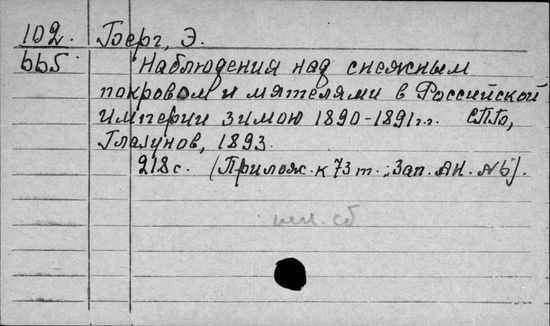 102. Берг, Э.
665 Наблюдения над снежным
покровом и мятелями в Российской
империи зимою 1890-1891 г.г. СПб,
Глазунов, 1893.
218 с. (Прилож. к 73 т. "Зап. АН. №6").
сб